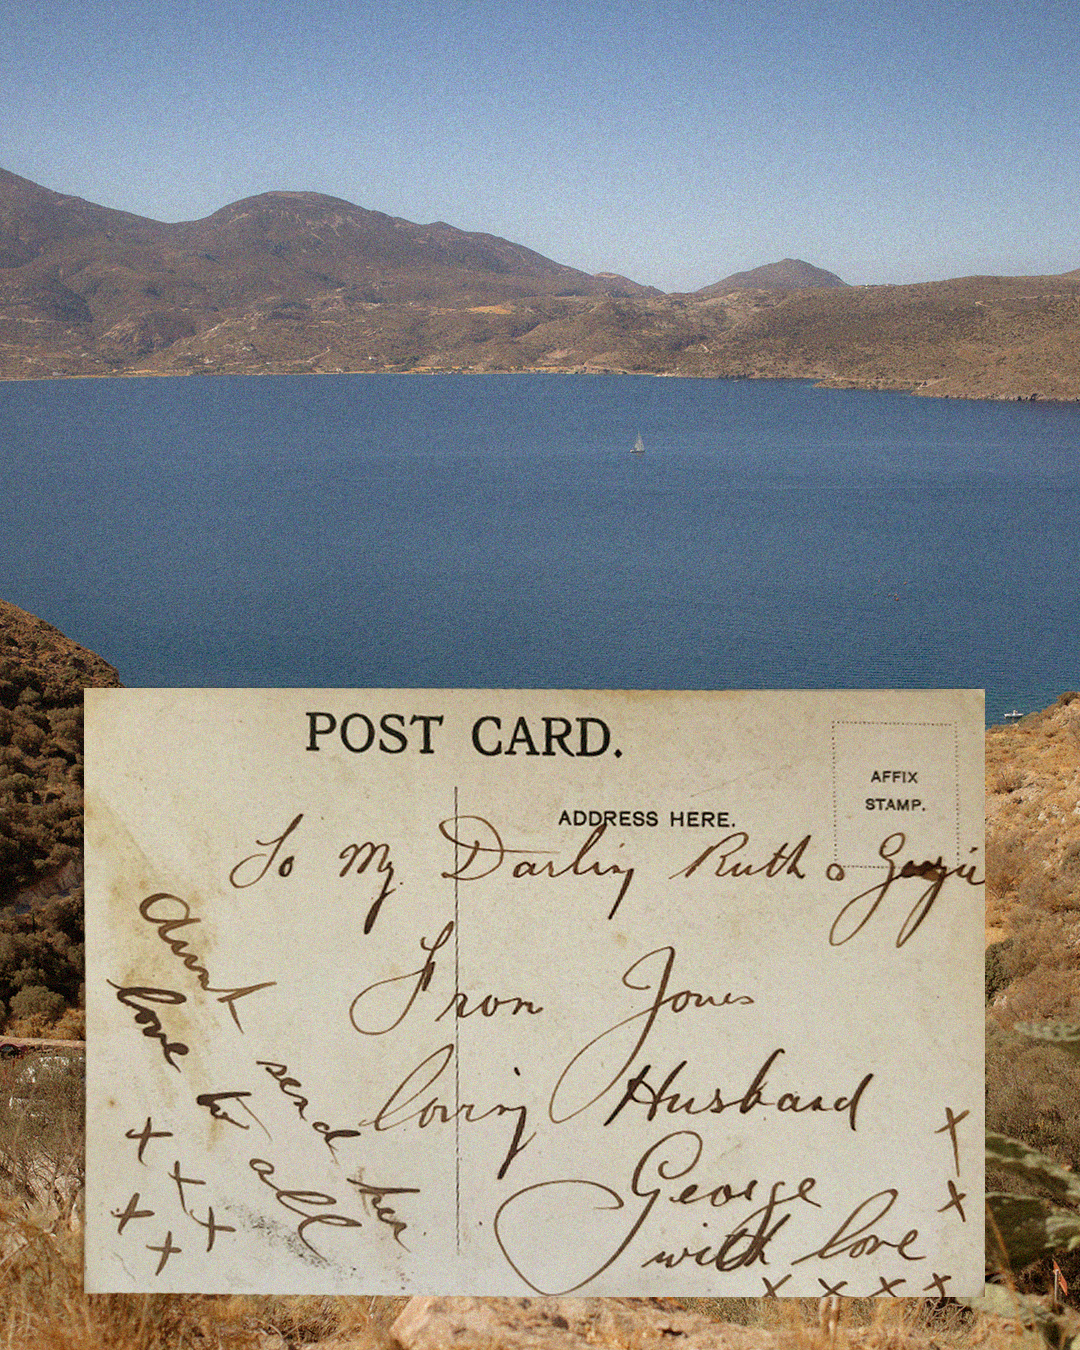 POST CARD.
AFFIX
STAMP.
ADDRESS HERE.
To My Darling Ruth & Georgie
From Yours
loving Husband
George
with love
x x
x x x x
Aunt send her
love to all
x x x
x x